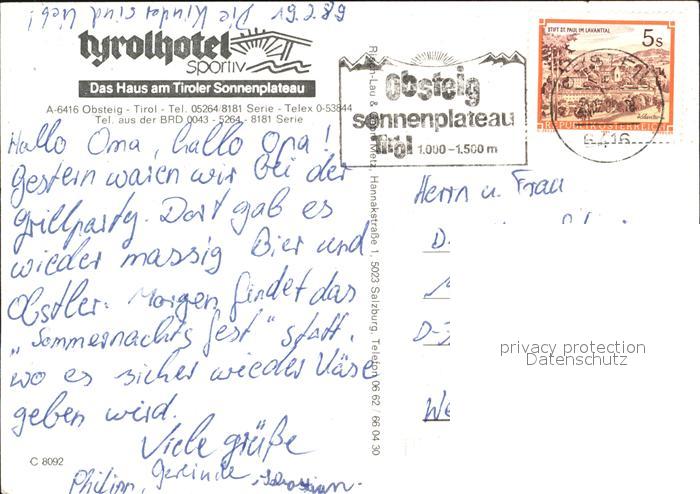 Die Kinder sind lieb! 19.7.89
tyrolhotel
sportiv
Das Haus am Tiroler Sonnenplateau
A-6416 Obsteig - Tirol - Tel. 05264/8181 Serie - Telex 0-53844
Tel. aus der BRD 0043 - 5264 - 8181 Serie
Hallo Oma, hallo Opa!
Gestern waren wir bei der
Grillparty. Dort gab es
wieder massig Bier und
Obstler. Morgen findet das
„Sommernachtsfest" statt,
wo es sicher wieder Käse
geben wird.
Viele Grüße
Philipp, Gerlinde, Sebastian.
C 8092
Metz, Hannakstraße 1, 5023 Salzburg, Telefon 06 62 / 66 04 30
Obsteig
sonnenplateau
Tirol 1.000-1.500 m
STIFT ST. PAUL IM LAVANTTAL
5 S
REPUBLIK ÖSTERREICH
6416
Herrn u. Frau
D-
We
privacy protection
Datenschutz